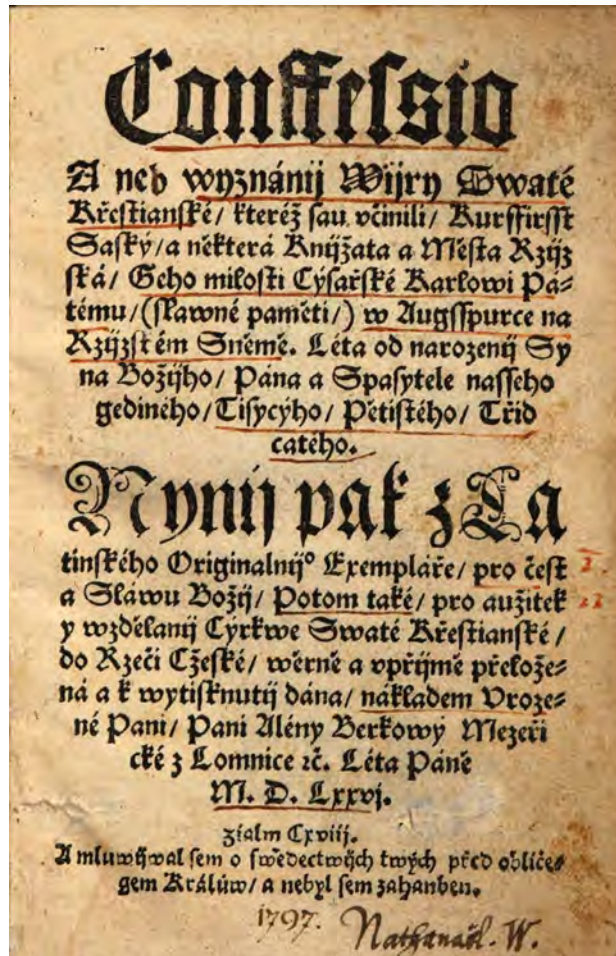 Conffessio
A neb wyznánij Wijry Swaté
Křestianské/ kteréž sau včinili/ Kurffirsst
Saský/ a některá Knijžata a Města Rzijz
ská/ Geho milosti Cýsařské Karlowi Pá⸗
tému/ (slawné paměti/) w Augsspurce na
Rzijzském Sněmě. Léta od narozenij Sy
na Božijho/ Pána a Spasytele nasseho
gediného/ Tisycýho/ Pětistého/ Třid
catého.
Nynij pak z La
tinského Originalnijº Exempláře/ pro čest
a Sláwu Božij/ Potom také/ pro aužitek
y wzdělanij Cýrkwe Swaté Křestianské/
do Rzeči Cžeské/ wěrně a vpřijmě přelože⸗
ná a k wytisknutij dána/ nákladem Vroze⸗
né Pani/ Pani Alény Berkowý Mezeři
cké z Lomnice ꝛč. Léta Páně
M. D. Lxxvj.
zialm Cxviij.
A mluwijwal sem o swědectwijch twých před obliče⸗
gem Králůw/ a nebyl sem zahanben.
1797. Nathanaël. W.